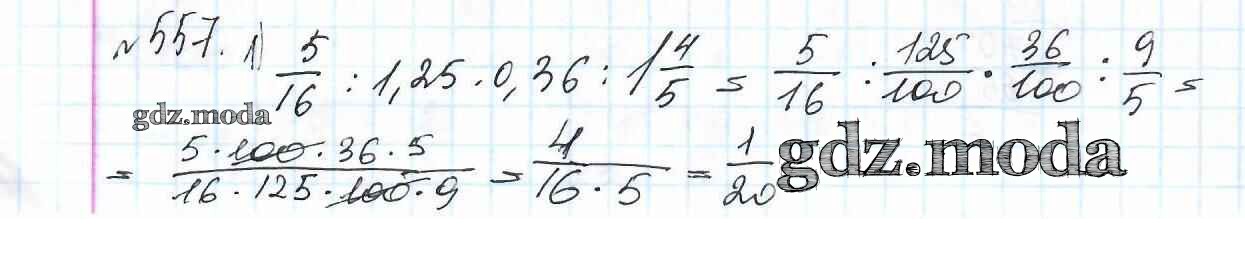 №557. 1) 5/16 : 1,25 · 0,36 : 1 4/5 = 5/16 : 125/100 · 36/100 : 9/5 =
gdz.moda
= 5 · 100 · 36 · 5 / 16 · 125 · 100 · 9 = 4 / 16 · 5 = 1/20
gdz.moda